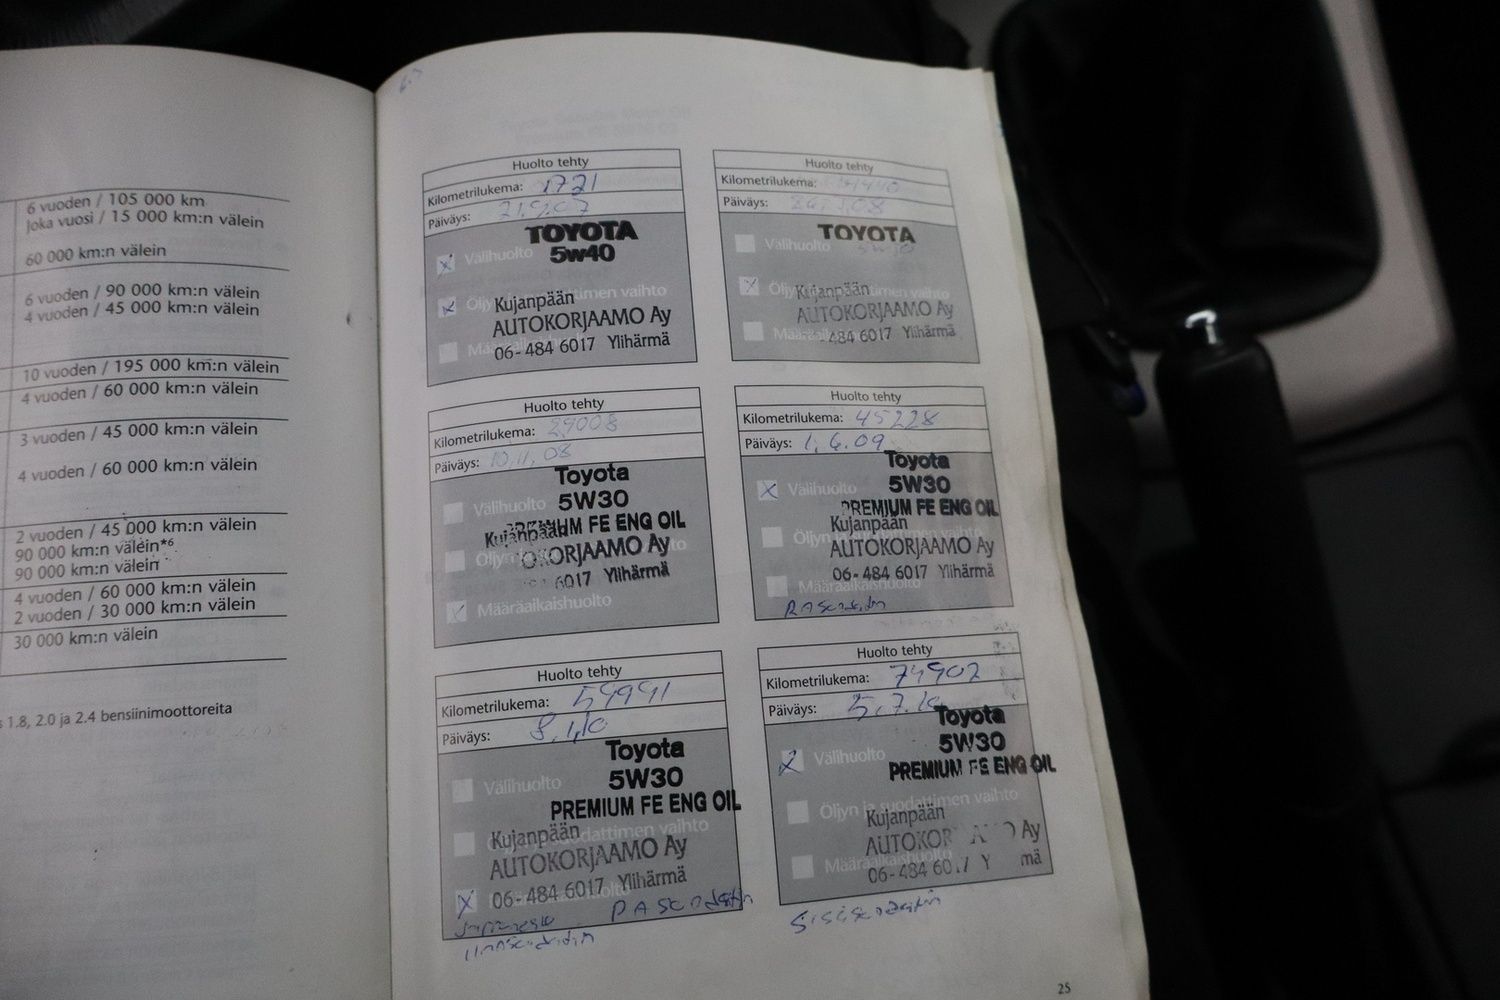 6 vuoden / 105 000 km
Joka vuosi / 15 000 km:n välein
60 000 km:n välein
6 vuoden / 90 000 km:n välein
4 vuoden / 45 000 km:n välein
10 vuoden / 195 000 km:n välein
4 vuoden / 60 000 km:n välein
3 vuoden / 45 000 km:n välein
4 vuoden / 60 000 km:n välein
2 vuoden / 45 000 km:n välein
90 000 km:n välein*6
90 000 km:n välein
4 vuoden / 60 000 km:n välein
2 vuoden / 30 000 km:n välein
30 000 km:n välein
1.8, 2.0 ja 2.4 bensiinimoottoreita
Huolto tehty
Kilometrilukema: 1721
Päiväys: 21.9.07
TOYOTA
5w40
Välihuolto
Kujanpään
AUTOKORJAAMO Ay
06-484 6017 Ylihärmä
Huolto tehty
Kilometrilukema:
Päiväys:
TOYOTA
Välihuolto
Kujanpään
AUTOKORJAAMO Ay
484 6017 Ylihärmä
Huolto tehty
Kilometrilukema: 29008
Päiväys: 10.11.08
Toyota
5W30
Välihuolto
PREMIUM FE ENG OIL
Kujanpään
OKORJAAMO Ay
6017 Ylihärmä
Määräaikaishuolto
Huolto tehty
Kilometrilukema: 45228
Päiväys: 1.6.09
Toyota
5W30
Välihuolto
PREMIUM FE ENG OIL
Kujanpään
AUTOKORJAAMO Ay
06-484 6017 Ylihärmä
Määräaikaishuolto
Huolto tehty
Kilometrilukema: 59991
Päiväys: 8.1.10
Toyota
5W30
Välihuolto
PREMIUM FE ENG OIL
Kujanpään
AUTOKORJAAMO Ay
06-484 6017 Ylihärmä
Huolto tehty
Kilometrilukema: 74902
Päiväys: 5.7.10
Toyota
5W30
Välihuolto
PREMIUM FE ENG OIL
Öljyn ja suodattimen vaihto
Kujanpään
AUTOKOR Ay
06-484
25